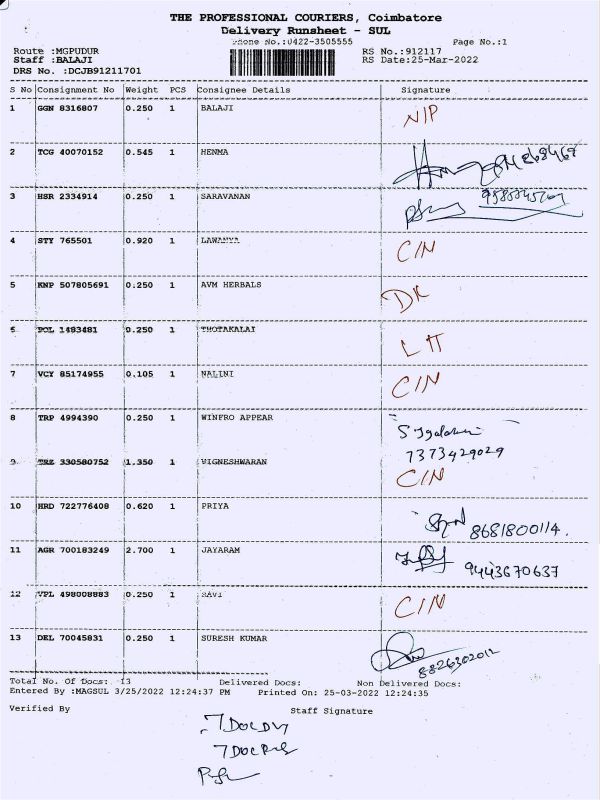 THE PROFESSIONAL COURIERS, Coimbatore
Delivery Runsheet - SUL
Phone No.:0422-3505555
Page No.:1
Route :MGPUDUR
RS No.:912117
Staff :BALAJI
RS Date:25-Mar-2022
DRS No. :DCJB91211701
S No Consignment No Weight PCS Consignee Details Signature
1 GGN 8316807 0.250 1 BALAJI N/P
2 TCG 40070152 0.545 1 HENMA
3 HSR 2334914 0.250 1 SARAVANAN
4 STY 765501 0.920 1 LAWANYA C/N
5 KNP 507805691 0.250 1 AVM HERBALS DK
6 POL 1483481 0.250 1 THOTAKALAI
7 VCY 85174955 0.105 1 NALINI C/N
8 TRP 4994390 0.250 1 WINFRO APPEAR
7373429029
9 TRZ 330580752 1.350 1 VIGNESHWARAN C/N
10 HRD 722776408 0.620 1 PRIYA
8681800114.
11 AGR 700183249 2.700 1 JAYARAM
9443670637
12 VPL 498008883 0.250 1 RAVI C/N
13 DEL 70045831 0.250 1 SURESH KUMAR
8826302012
Total No. Of Docs: 13 Delivered Docs: Non Delivered Docs:
Entered By :MAGSUL 3/25/2022 12:24:37 PM Printed On: 25-03-2022 12:24:35
Verified By Staff Signature